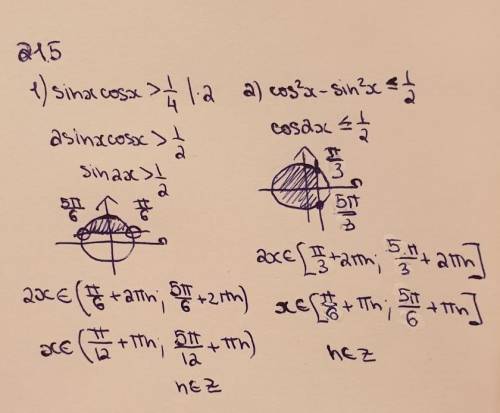 215
1) sinxcosx > 1/4 |·2
2sinxcosx > 1/2
sin2x > 1/2
5π/6 π/6
2x ∈ (π/6 + 2πn; 5π/6 + 2πn)
x ∈ (π/12 + πn; 5π/12 + πn)
n ∈ Z
2) cos²x - sin²x ≤ 1/2
cos2x ≤ 1/2
π/3
5π/3
2x ∈ [π/3 + 2πn; 5π/3 + 2πn]
x ∈ [π/6 + πn; 5π/6 + πn]
n ∈ Z